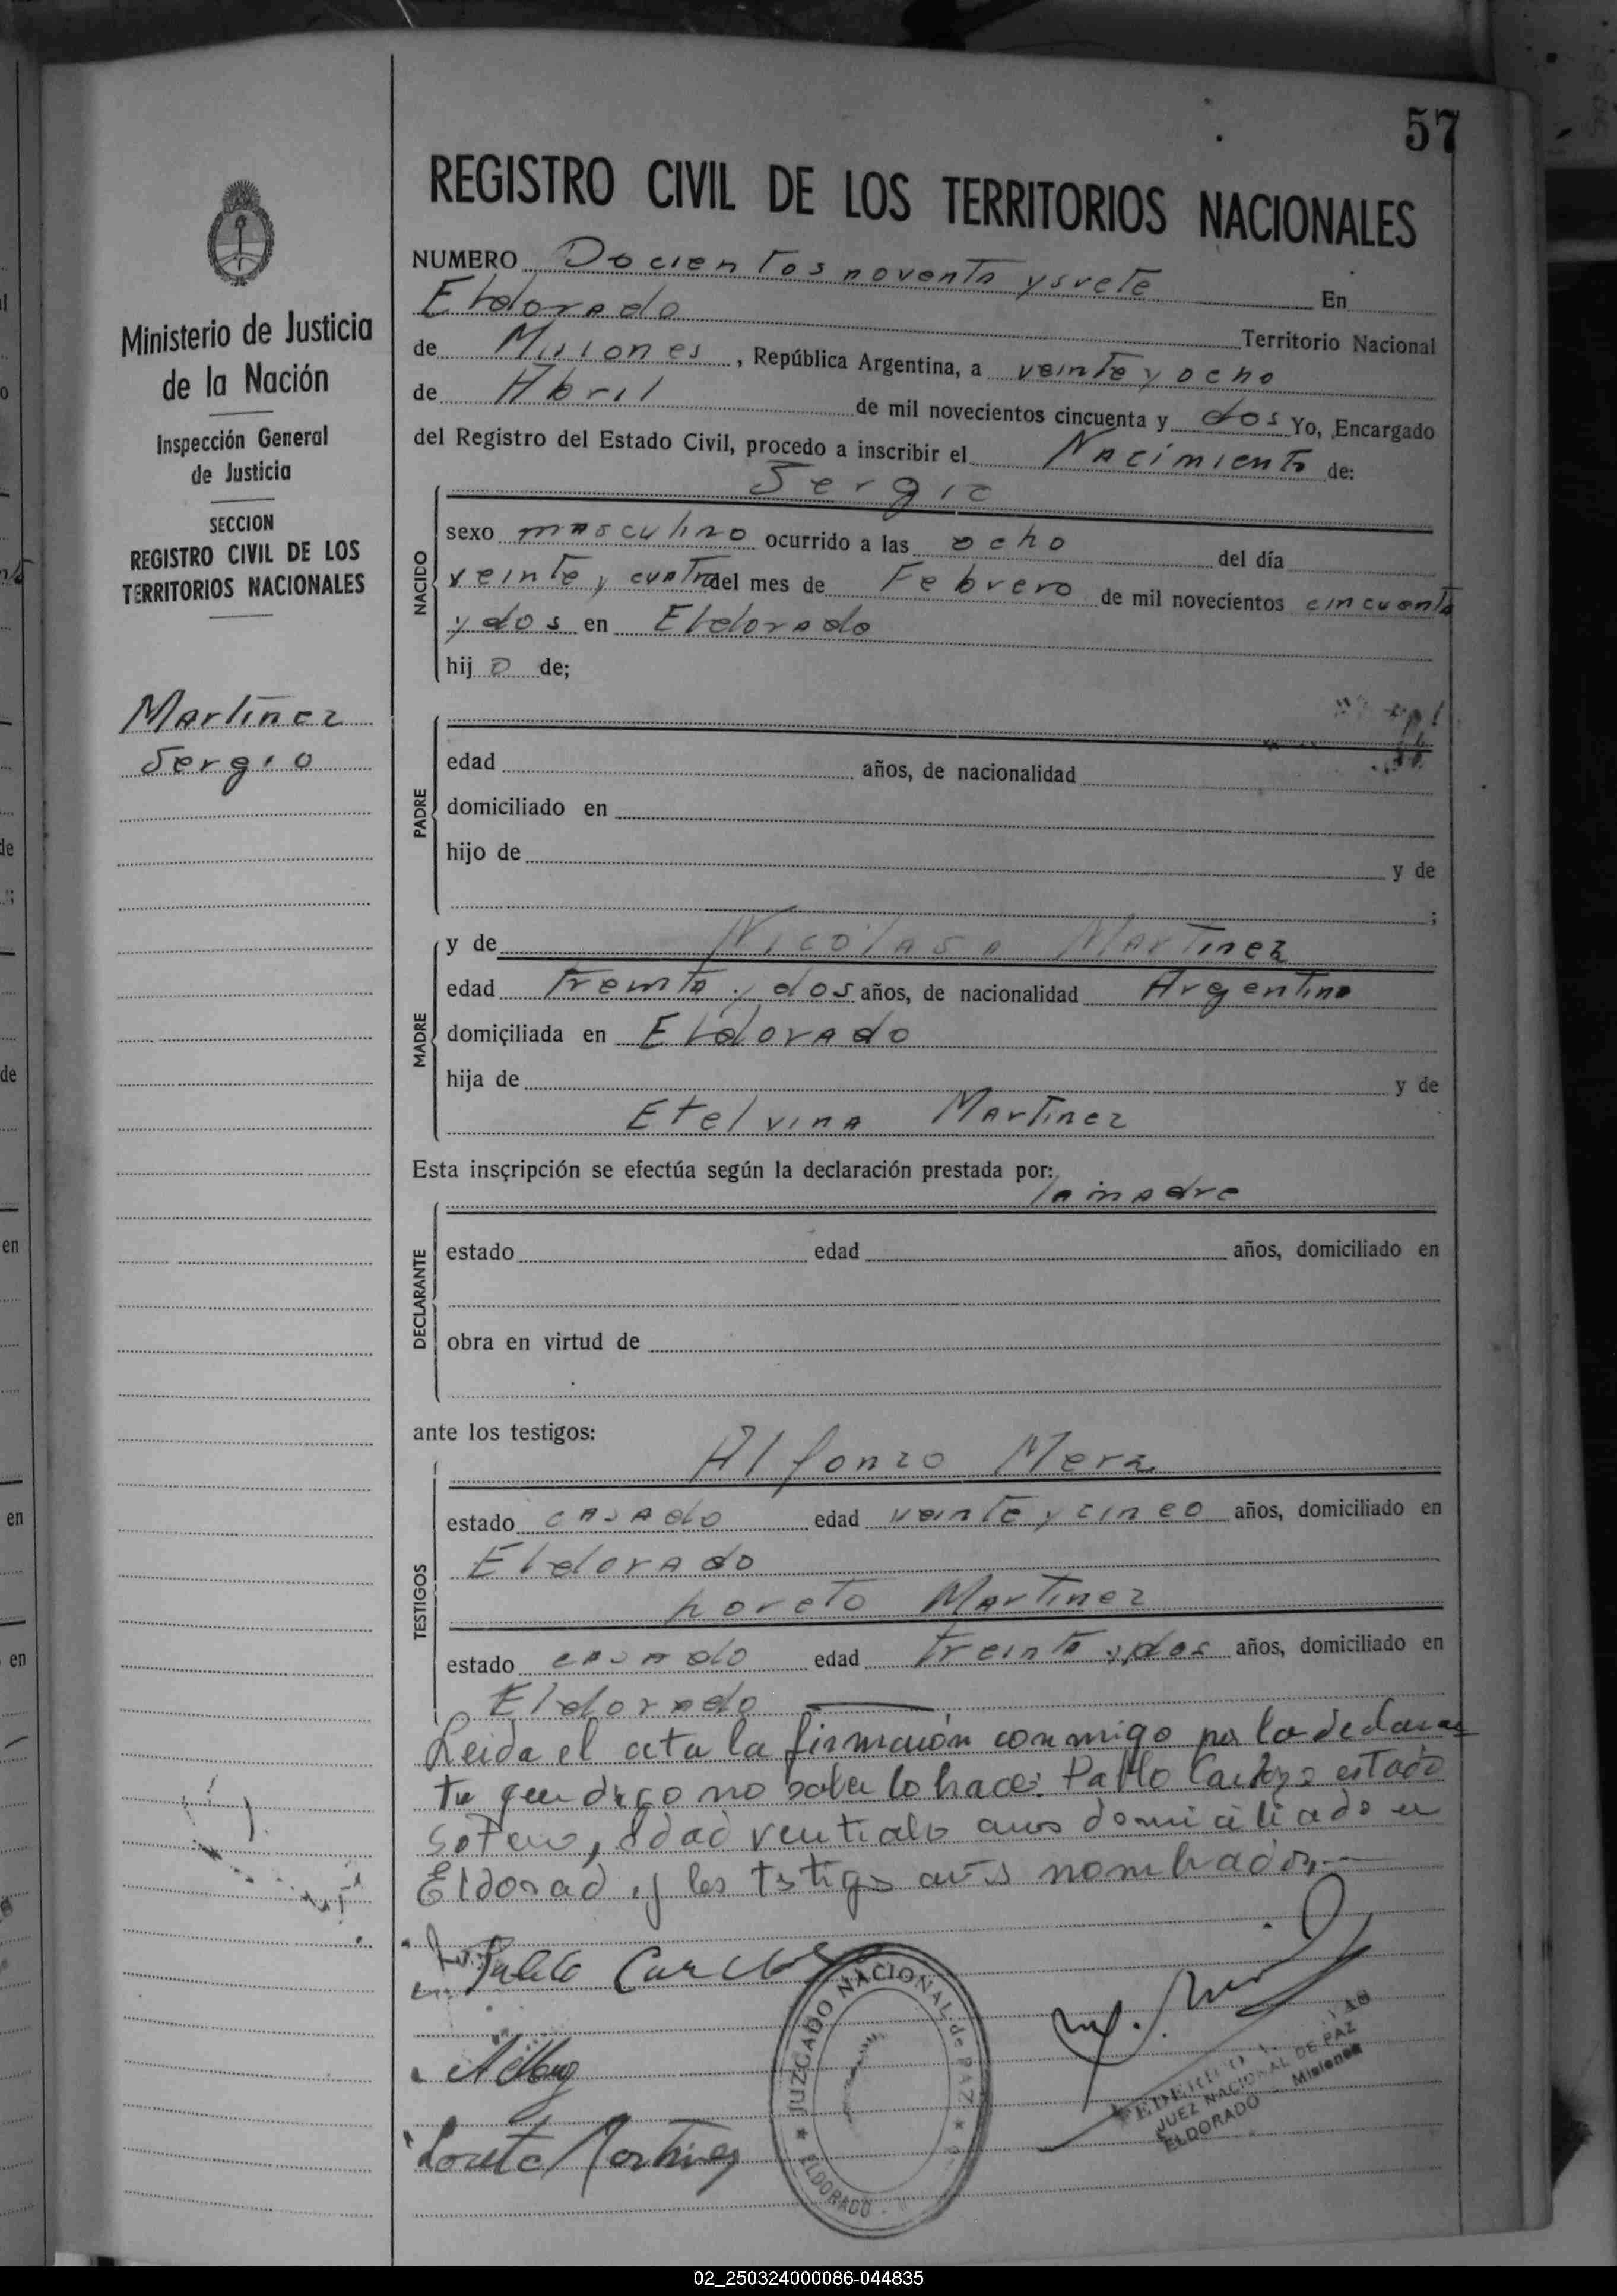 57
REGISTRO CIVIL DE LOS TERRITORIOS NACIONALES
Ministerio de Justicia
de la Nación
Inspección General
de Justicia
SECCION
REGISTRO CIVIL DE LOS
TERRITORIOS NACIONALES
Martinez
Sergio
NUMERO Docientos noventa y siete En
Eldorado Territorio Nacional
de Misiones, República Argentina, a veinte y ocho
de Abril de mil novecientos cincuenta y dos Yo, Encargado
del Registro del Estado Civil, procedo a inscribir el Nacimiento de:
Sergio
NACIDO
sexo masculino ocurrido a las ocho del día
veinte y cuatro del mes de Febrero de mil novecientos cincuenta
y dos en Eldorado
hijo de;
PADRE
edad años, de nacionalidad
domiciliado en
hijo de y de
;
MADRE
y de Nicolasa Martinez
edad Treinta y dos años, de nacionalidad Argentina
domiciliada en Eldorado
hija de y de
Etelvina Martinez
Esta inscripción se efectúa según la declaración prestada por:
la madre
DECLARANTE
estado edad años, domiciliado en
obra en virtud de
ante los testigos:
Alfonzo Merz
TESTIGOS
estado casado edad veinte y cinco años, domiciliado en
Eldorado
Loreto Martinez
estado casado edad Treinta y dos años, domiciliado en
Eldorado
Leida el acta la firmaron conmigo por la declaran
te que digo no saber lo hace: Pablo estado
edad años domiciliado en
Eldorad y los nombrados
Pablo
Loreto Martinez
JUZGADO NACIONAL de PAZ
ELDORADO
JUEZ NACIONAL DE PAZ
ELDORADO Misiones
02_250324000086-044835